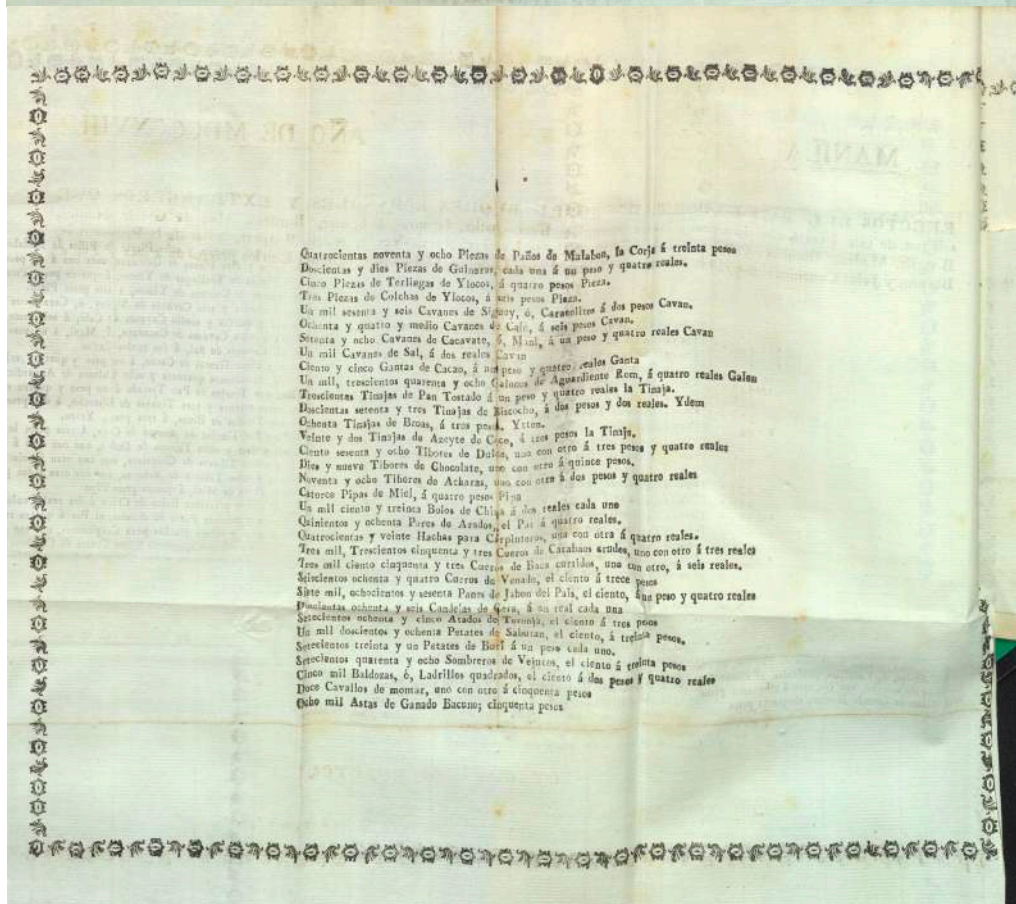 Quatrocientas noventa y ocho Piezas de Paños de Malabon, la Corja á treinta pesos
Doscientas y dies Piezas de Guinaras, cada una á un peso y quatro reales.
Cinco Piezas de Terlingas de Ylocos, á quatro pesos Pieza.
Tres Piezas de Colchas de Ylocos, á seis pesos Pieza.
Un mil sesenta y seis Cavanes de Siguey, ó, Caracolitos á dos pesos Cavan.
Ochenta y quatro y medio Cavanes de Cafe, á seis pesos Cavan.
Setenta y ocho Cavanes de Cacavate, ó, Mani, á un peso y quatro reales Cavan
Un mil Cavanes de Sal, á dos reales Cavan
Ciento y cinco Gantas de Cacao, á un peso y quatro reales Ganta
Un mil, trescientos quarenta y ocho Galones de Aguardiente Rom, á quatro reales Galon
Trescientas Tinajas de Pan Tostado á un peso y quatro reales la Tinaja.
Doscientas setenta y tres Tinajas de Biscocho, á dos pesos y dos reales. Ydem
Ochenta Tinajas de Broas, á tres pesos. Ytten.
Veinte y dos Tinajas de Azeyte de Coco, á tres pesos la Tinaja.
Ciento sesenta y ocho Tibores de Dulce, uno con otro á tres pesos y quatro reales
Dies y nueve Tibores de Chocolate, uno con otro á quince pesos.
Noventa y ocho Tibores de Acharas, uno con otro á dos pesos y quatro reales
Catorce Pipas de Miel, á quatro pesos Pipa
Un mil ciento y treinta Bolos de China á dos reales cada uno
Quinientos y ochenta Pares de Arados, el Par á quatro reales.
Quatrocientas y veinte Hachas para Carpinteros, una con otra á quatro reales.
Tres mil, Trescientos cinquenta y tres Cueros de Carabaos crudos, uno con otro á tres reales
Tres mil ciento cinquenta y tres Cueros de Baca curtidos, uno con otro, á seis reales.
Seiscientos ochenta y quatro Cueros de Venado, el ciento á trece pesos
Siete mil, ochocientos y sesenta Panes de Jabon del Pais, el ciento, á un peso y quatro reales
Doscientas ochenta y seis Candelas de Cera, á un real cada una
Setecientos ochenta y cinco Atados de Toronja, el ciento á tres pesos
Un mil doscientos y ochenta Petates de Sabutan, el ciento, á treinta pesos.
Setecientos treinta y un Petates de Buri á un peso cada uno.
Setecientos quarenta y ocho Sombreros de Vejucos, el ciento á treinta pesos
Cinco mil Baldozas, ó, Ladrillos quadrados, el ciento á dos pesos y quatro reales
Doce Cavallos de montar, uno con otro á cinquenta pesos
Ocho mil Astas de Ganado Bacuno; cinquenta pesos